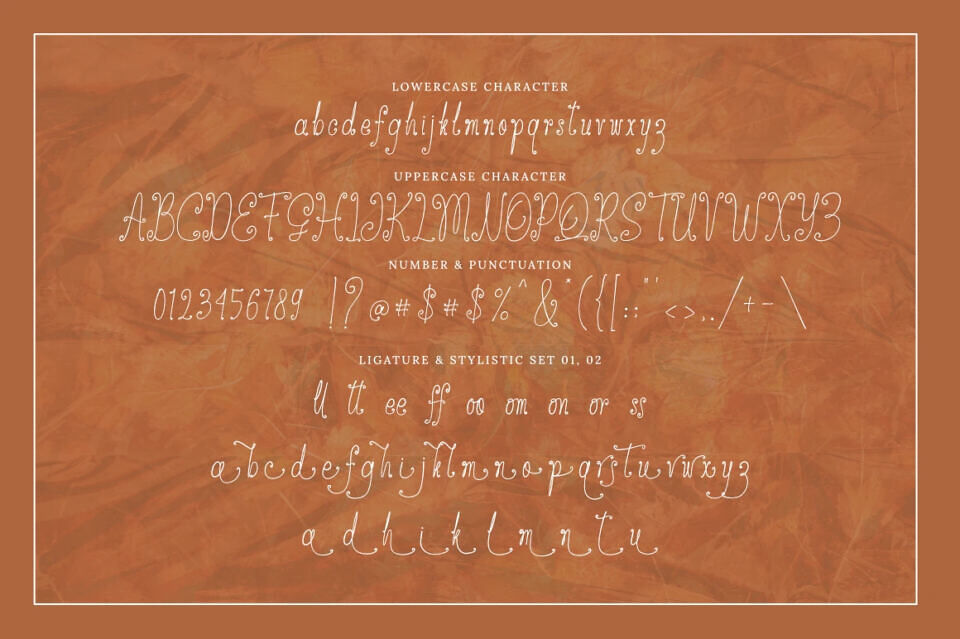 LOWERCASE CHARACTER
abcdefghijklmnopqrstuvwxyz
UPPERCASE CHARACTER
ABCDEFGHIJKLMNOPQRSTUVWXYZ
NUMBER & PUNCTUATION
0123456789 !?@#$#$%^&*({[:;"'<>,./+-\
LIGATURE & STYLISTIC SET 01, 02
ll tt ee ff oo om on or ss
abcdefghijklmnopqrstuvwxyz
a d h i k l m n t u